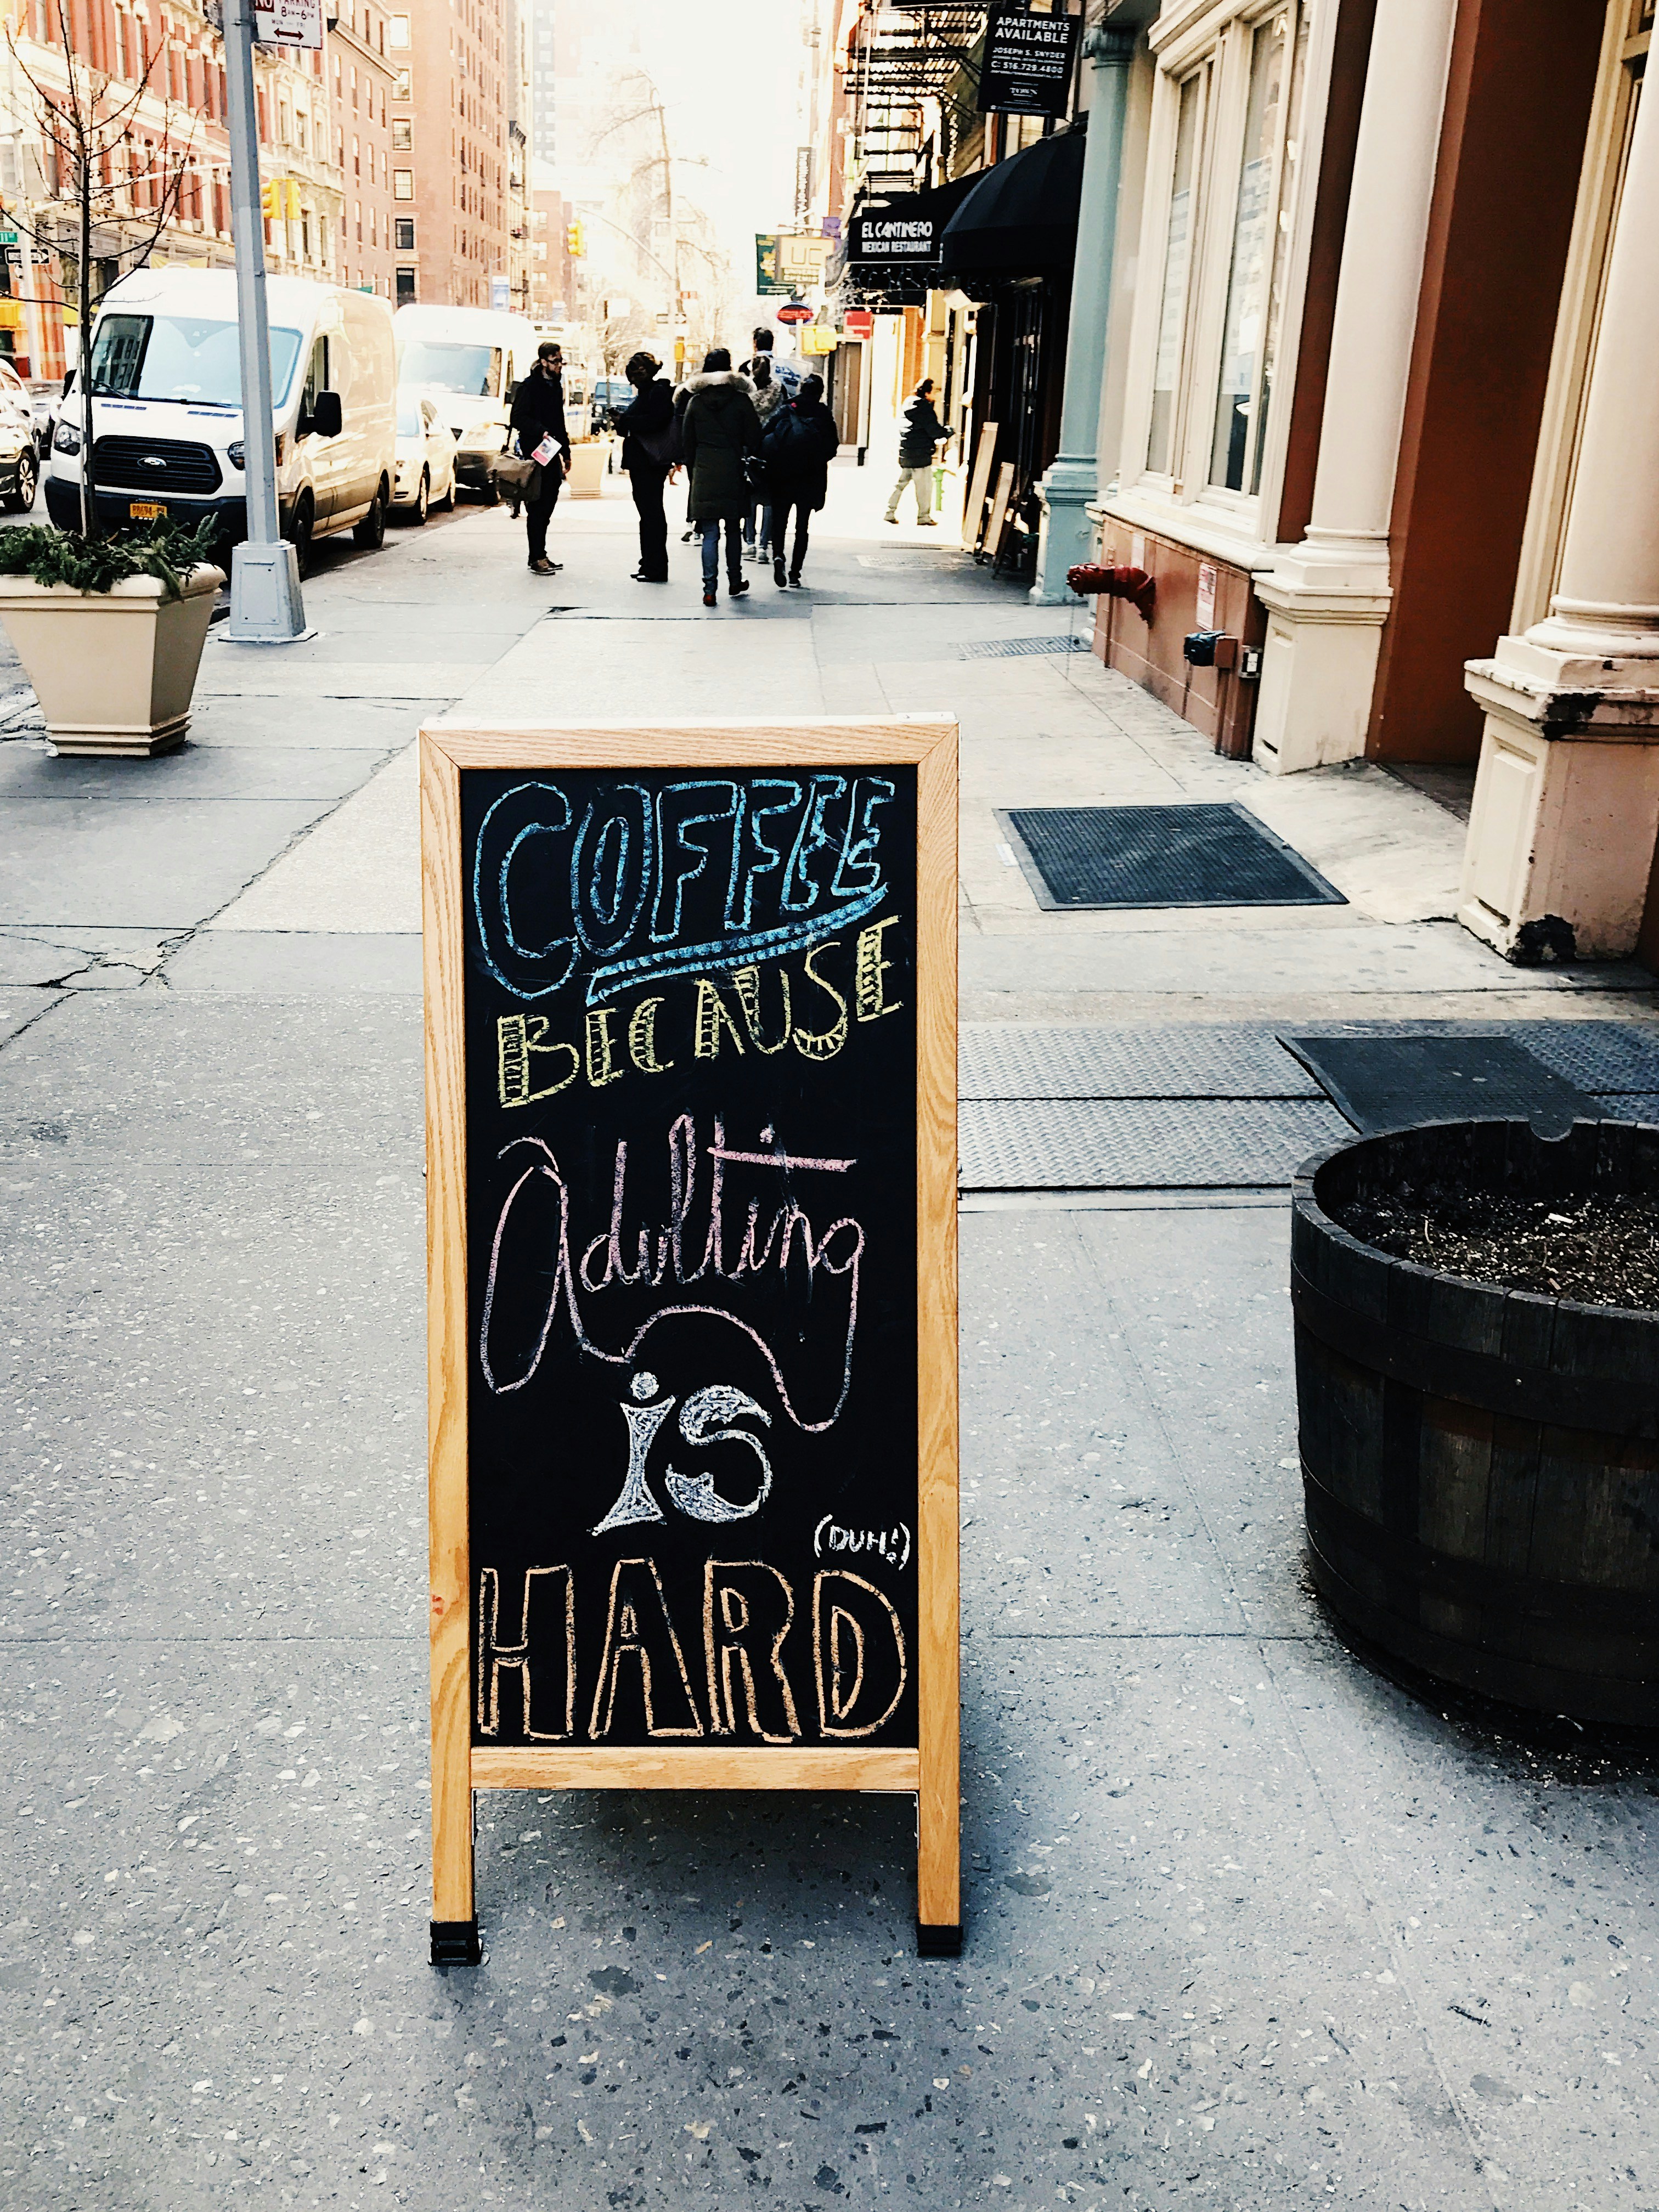 NO PARKING
8AM-6PM
MON FRI
APARTMENTS
AVAILABLE
JOSEPH S. SNYDER
C: 516.729.4800
TOWN
EL CANTINERO
MEXICAN RESTAURANT
COFFEE
BECAUSE
Adulting
is
(DUH!)
HARD